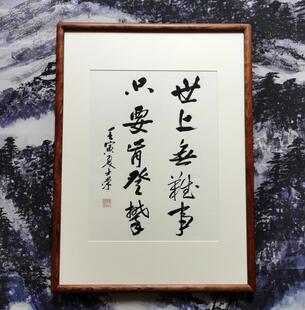 世上无難事
只要肯登攀
壬寅夏士荣